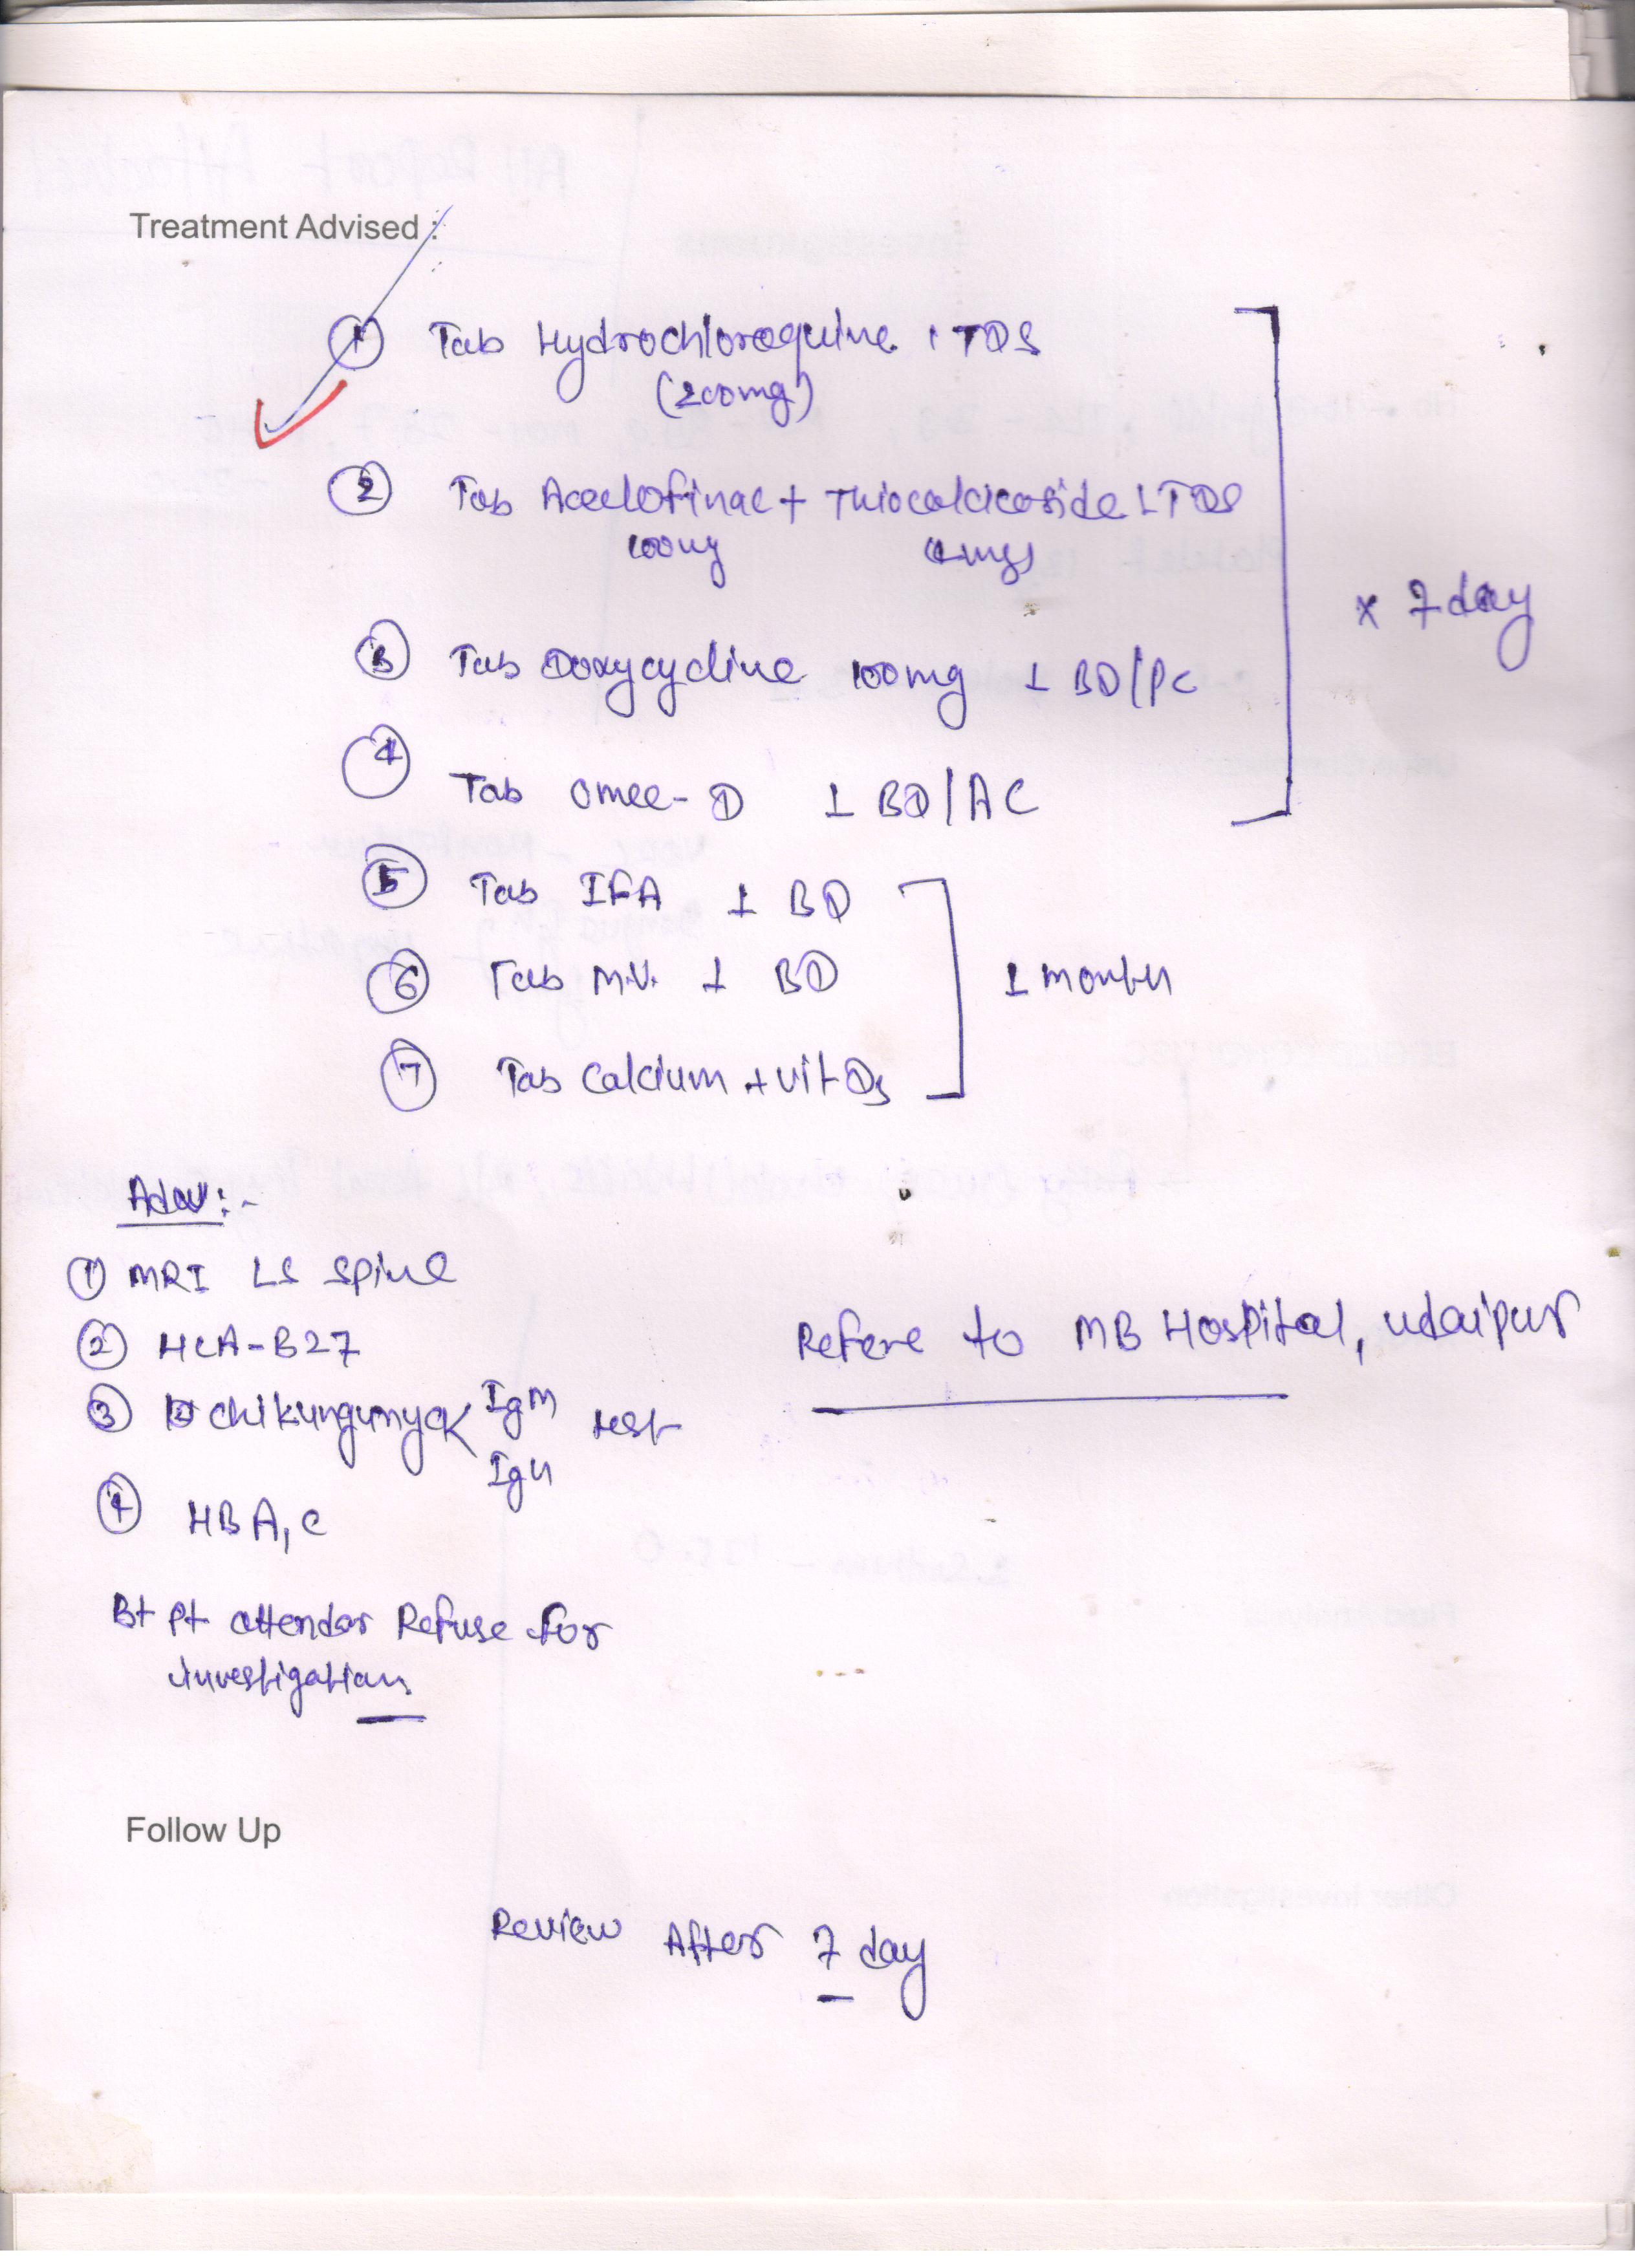 Treatment Advised :
① Tab Hydrochloroquine 1 TDS
(200mg)
② Tab Aceclofinac + Thiocalcicoside 1 TDS
100mg 4mg
③ Tab Doxycycline 100mg 1 BD/PC
④ Tab Omee-D 1 BD/AC
x 7 day
⑤ Tab IFA 1 BD
⑥ Tab M.V. 1 BD
⑦ Tab Calcium + Vit D3
1 month
Adv:-
① MRI LS Spine
② HLA-B27
③ Chikungunya IgM test
IgG
④ HBA1C
Refere to MB Hospital, Udaipur
Bt Pt attender Refuse for
investigation
Follow Up
Review After 7 day